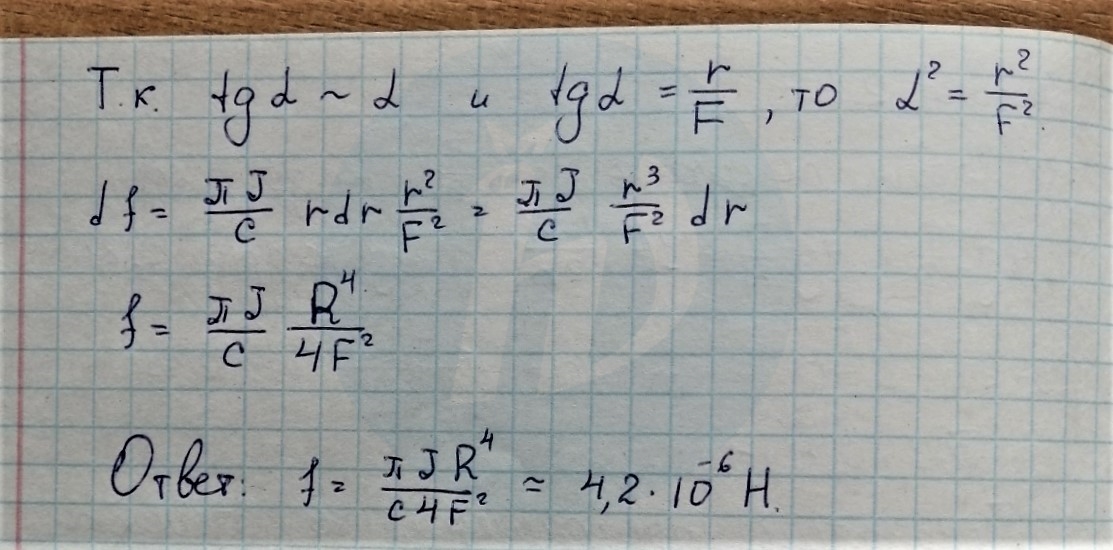 Т.к. tg α ~ α и tg α = r/F, то α² = r²/F².
df = πJ/c rdr r²/F² = πJ/c r³/F² dr
f = πJ/c R⁴/4F²
Ответ: f = πJR⁴/c4F² ≈ 4,2·10⁻⁶ Н.